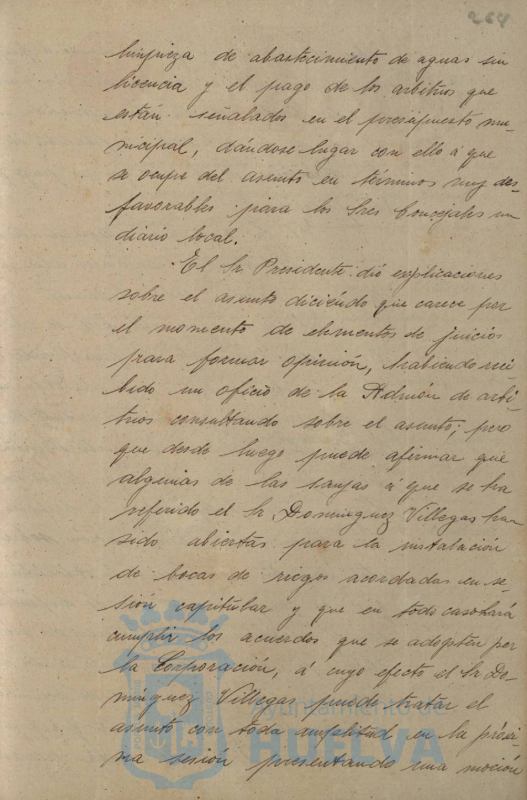 264
limpieza de abastecimiento de aguas sin
licencia y el pago de los arbitrios que
están señalados en el presupuesto mu-
nicipal, dándose lugar con ello á que
se ocupe del asunto en términos muy des-
favorables para los Sres Concejales un
diario local.
El Sr Presidente dió explicaciones
sobre el asunto diciendo que carece por
el momento de elementos de juicios
para formar opinión, habiendo reci-
bido un oficio de la Admón de arbi-
trios consultando sobre el asunto; pero
que desde luego puede afirmar que
algunas de las zanjas á que se ha
referido el Sr Dominguez Villegas han
sido abiertas para la instalación
de bocas de riegos acordadas en se-
sión capitular y que en todo caso hará
cumplir los acuerdos que se adopten por
la Corporación, á cuyo efecto el Sr Do-
minguez Villegas puede tratar el
asunto con toda amplitud en la próxi-
ma sesión presentando una moción
Ayuntamiento de
HUELVA